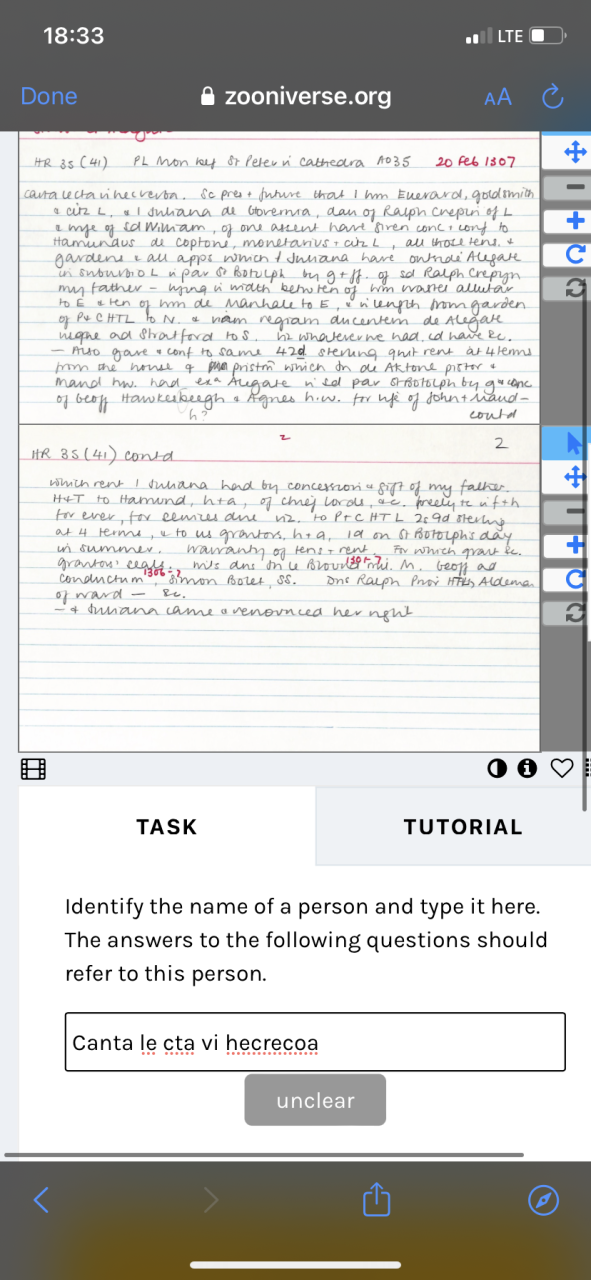 18:33 LTE
Done zooniverse.org AA
HR 35 (41) PL Mon bef St Peter in Cathedra A035 20 Feb 1307
Carta lecta in hec verba. Sc pres + future that I Wm Euerard, goldsmith
+ citz L, + I Juliana de dau of Ralph Crepin of L
+ wife of sd William, of one assent have given conc + conf to
Hamundus de Coptone, monetarius + citz L, all those tens. +
gardens + all apps which I Juliana have outside Alegate
in suburbio L in par St Botulph by g + ff. of sd Ralph Crepyn
my father – lying in width betw ten of Wm allutar
to E + ten of Wm de Manhale to E, + in length from garden
of P+C HTL to N. + viam regiam ducentem de Alegate
usque ad Stratford to S. h+ whatever we had, cd have &c.
– Also gave + conf to same 42d sterling quit rent at 4 terms
from the house + which Jn de Aktone pistor +
Maud hw. had exa Alegate in sd par St Botolph by g + conc
of Geoff Hawkesbeegh + Agnes h.w. for life of John + Maud –
h? contd
2 2
HR 35 (41) contd
which rent I Juliana had by concession + gift of my father.
H+T to Hamund, h+a, of chief lords, &c. freely &c
for ever, for services due viz. to P+C HTL 2s 9d sterling
at 4 terms, + to us grantors, h+a, 1d on St Botolphs day
in summer. Warranty of tens + rent. For which grant &c.
grantors' seals. Wits dns Jn le Blound mil. M. Geoff ad
1306-7
conductum 1306-7, Simon Bolet, SS. Dns Ralph Prior HTL, Alderman
of ward – &c.
– + Juliana came + renounced her right
TASK TUTORIAL
Identify the name of a person and type it here.
The answers to the following questions should
refer to this person.
Canta le cta vi hecrecoa
unclear